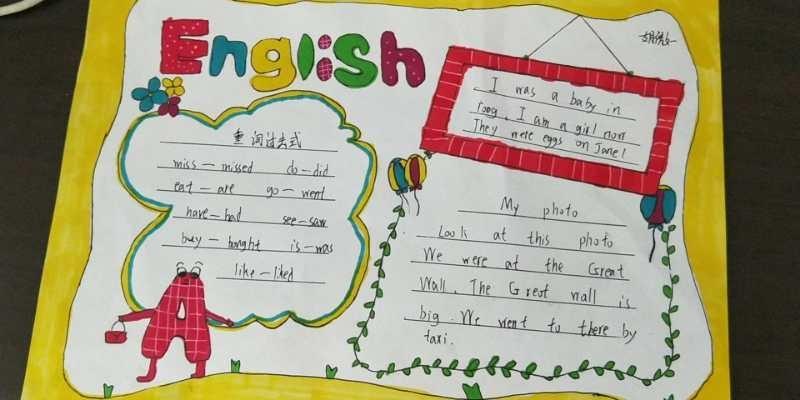 English
重词过去式
miss — missed do — did
eat — are go — went
have — had see — saw
buy — bought is — was
like — liked
I was a baby in
I am a girl now
They were eggs on June 1
My photo
Look at this photo
We were at the Great
Wall. The Great wall is
big. We went to there by
taxi.